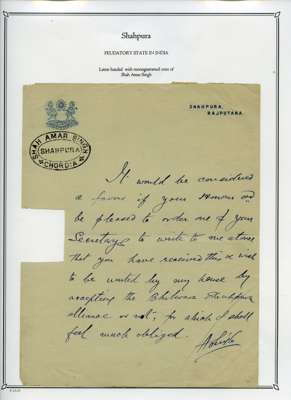 Shahpura
FEUDATORY STATE IN INDIA
Letter headed with monogrammed crest of
Shah Amar Singh
SHAHPURA,
RAJPUTANA.
SHAH AMAR SINGH
SHAHPURA
CHORDIA
It would be considered
a favor if your Honour
be pleased to order one of your
Secretary to write to me
that you have received this &
to be united by my house by
accepting the Bhilwara Shahpura
alliance or not; for which I shall
feel much obliged.